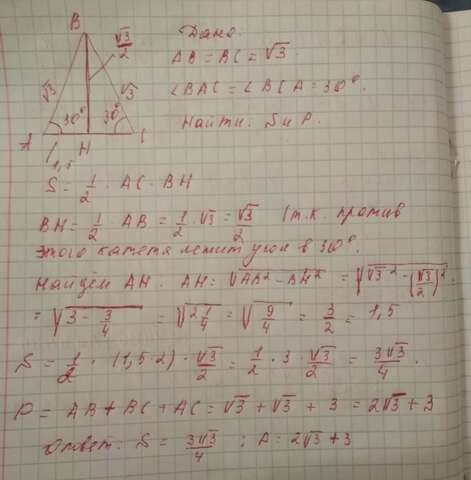 B
√3/2
√3
√3
30°
30°
A
H
C
1,5
Дано:
AB = BC = √3
∠BAC = ∠BCA = 30°.
Найти: S и P.
S = 1/2 · AC · BH
BH = 1/2 · AB = 1/2 · √3 = √3/2 (т.к. против
этого катета лежит угол в 30°.
Найдём AH. AH = √(AB² − BH²) = √(√3² − (√3/2)²)
= √(3 − 3/4) = √(2 1/4) = √(9/4) = 3/2 = 1,5
S = 1/2 · (1,5·2) · √3/2 = 1/2 · 3 · √3/2 = 3√3/4.
P = AB + BC + AC = √3 + √3 + 3 = 2√3 + 3
Ответ: S = 3√3/4 ; P = 2√3 + 3